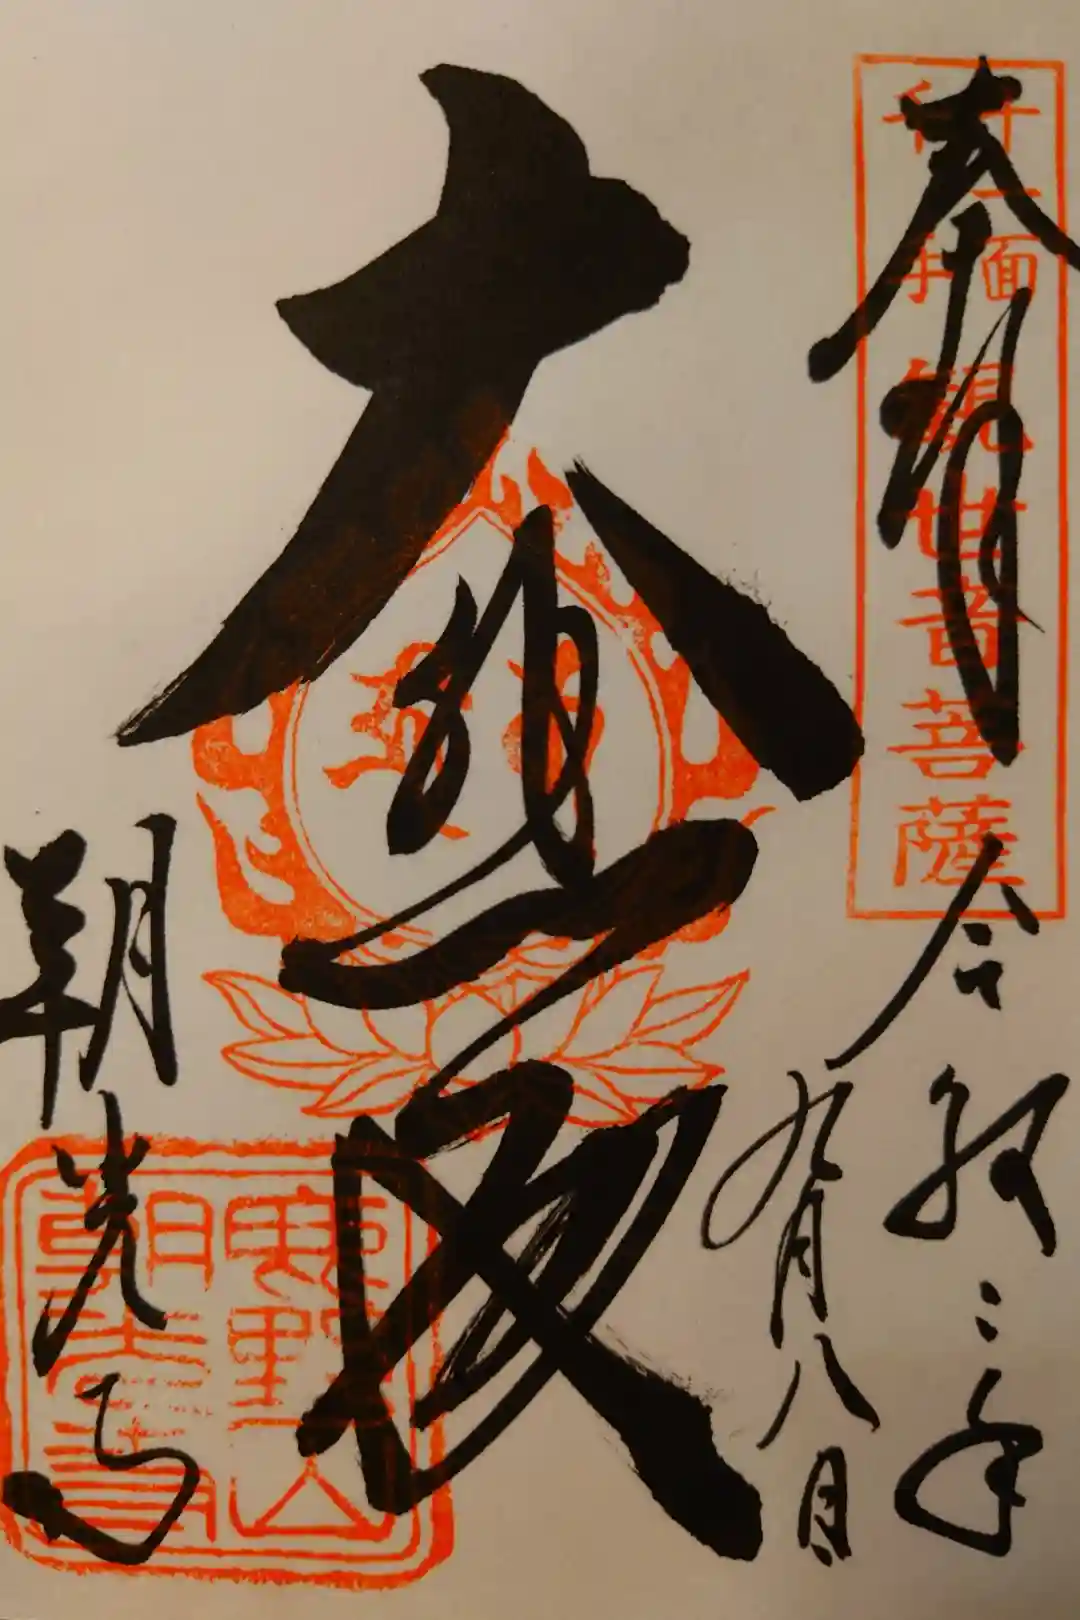 奉拝
十一面
千手
観世音菩薩
令和二年
九月八日
大悲殿
朝光寺
鹿野山
朝光寺